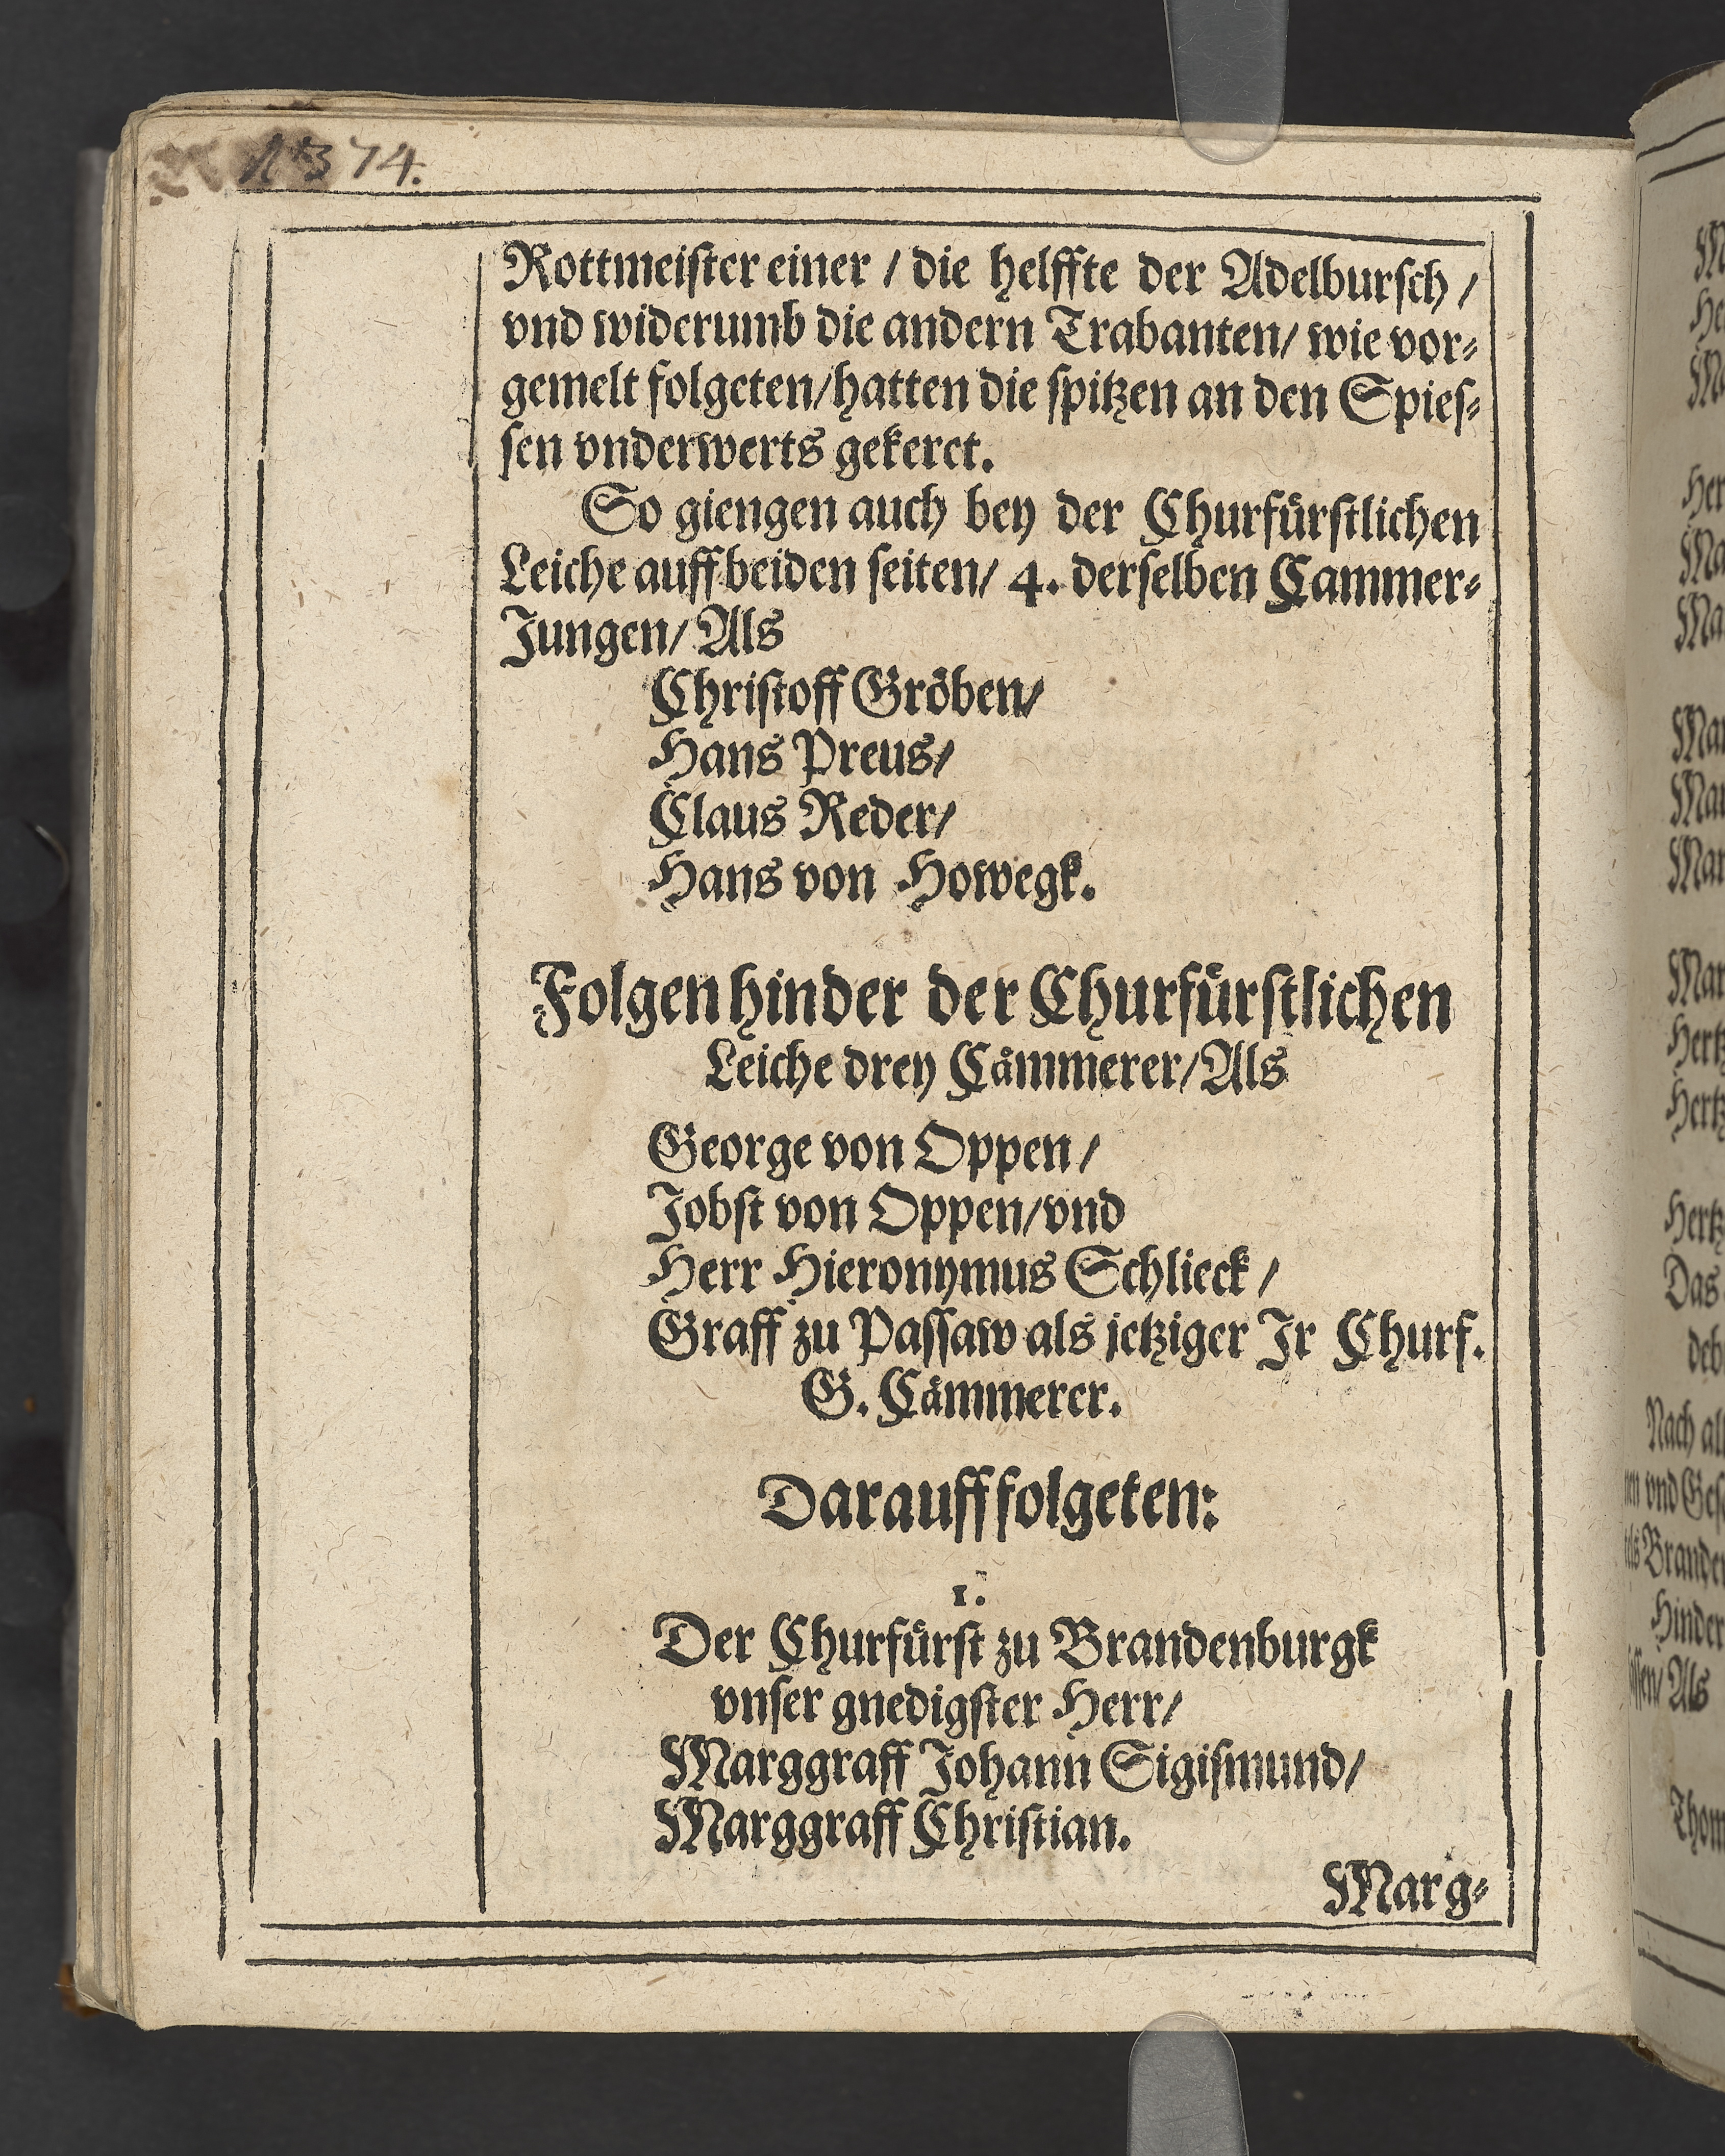 74.
Rottmeister einer / die helffte der Adelbursch /
vnd widerumb die andern Trabanten / wie vor⸗
gemelt folgeten / hatten die spitzen an den Spies⸗
sen vnderwerts gekeret.
So giengen auch bey der Churfürstlichen
Leiche auff beiden seiten / 4. derselben Cammer⸗
Jungen / Als
Christoff Gröben /
Hans Preus /
Claus Reder /
Hans von Howegk.
Folgen hinder der Churfürstlichen
Leiche drey Cämmerer / Als
George von Oppen /
Jobst von Oppen / vnd
Herr Hieronymus Schlieck /
Graff zu Passaw als jetziger Ir Churf.
G. Cämmerer.
Darauff folgeten:
1.
Der Churfürst zu Brandenburgk
vnser gnedigster Herr /
Marggraff Johann Sigismund /
Marggraff Christian.
Marg⸗